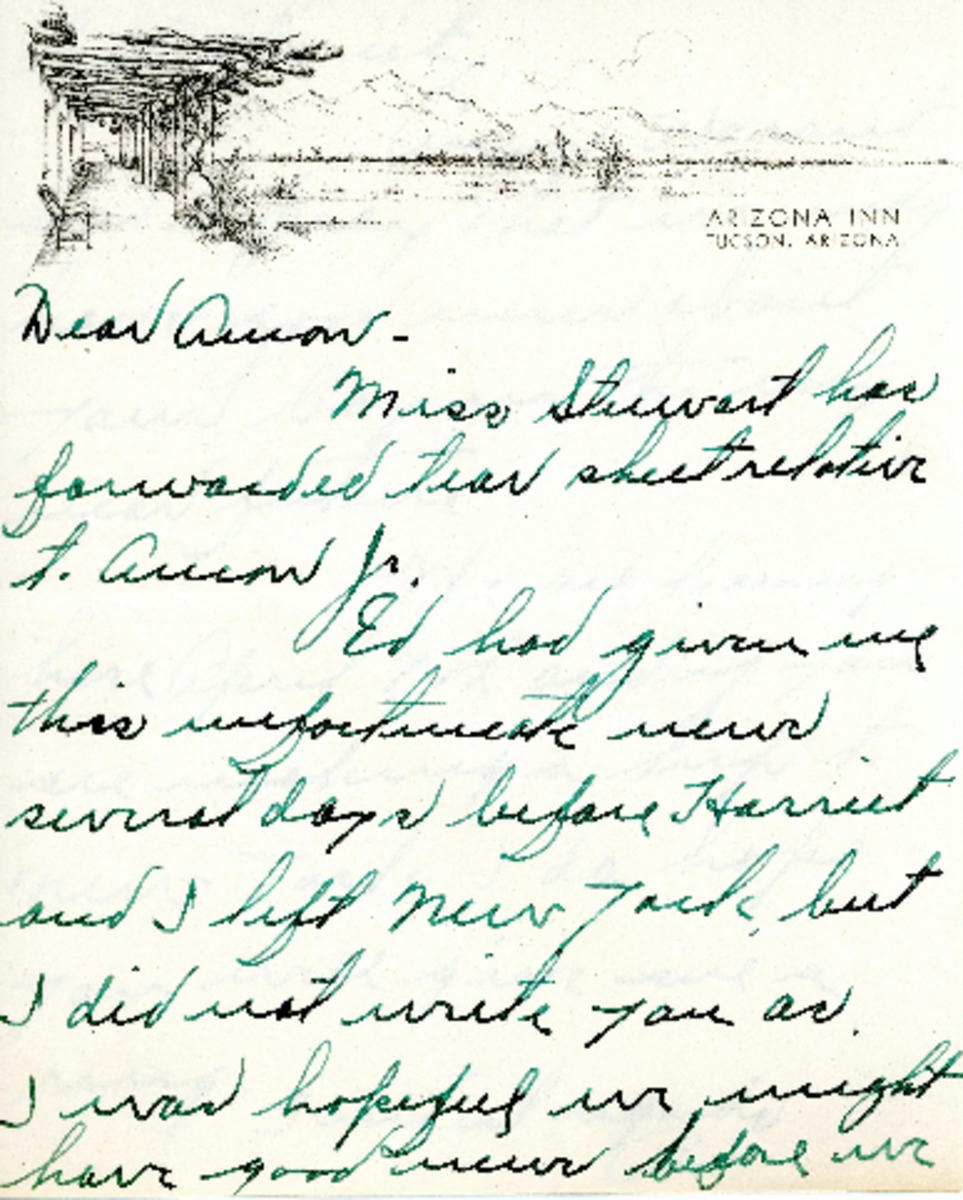 ARIZONA INN
TUCSON, ARIZONA
Dear Amon -
Miss Stewart has
forwarded tear sheet relative
to Amon Jr.
Ed had given me
this unfortunate news
several days before Harriet
and I left New York, but
I did not write you as
I was hopeful we might
have good news before we